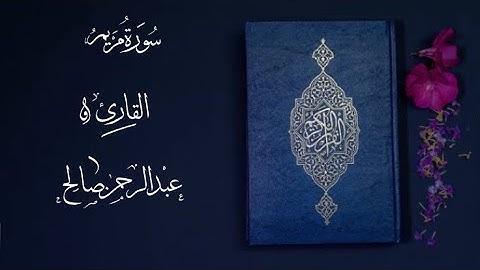 سُورَةُ مَريَم
القارئ ه
عبدالرحمن صالح
القرآن الكريم